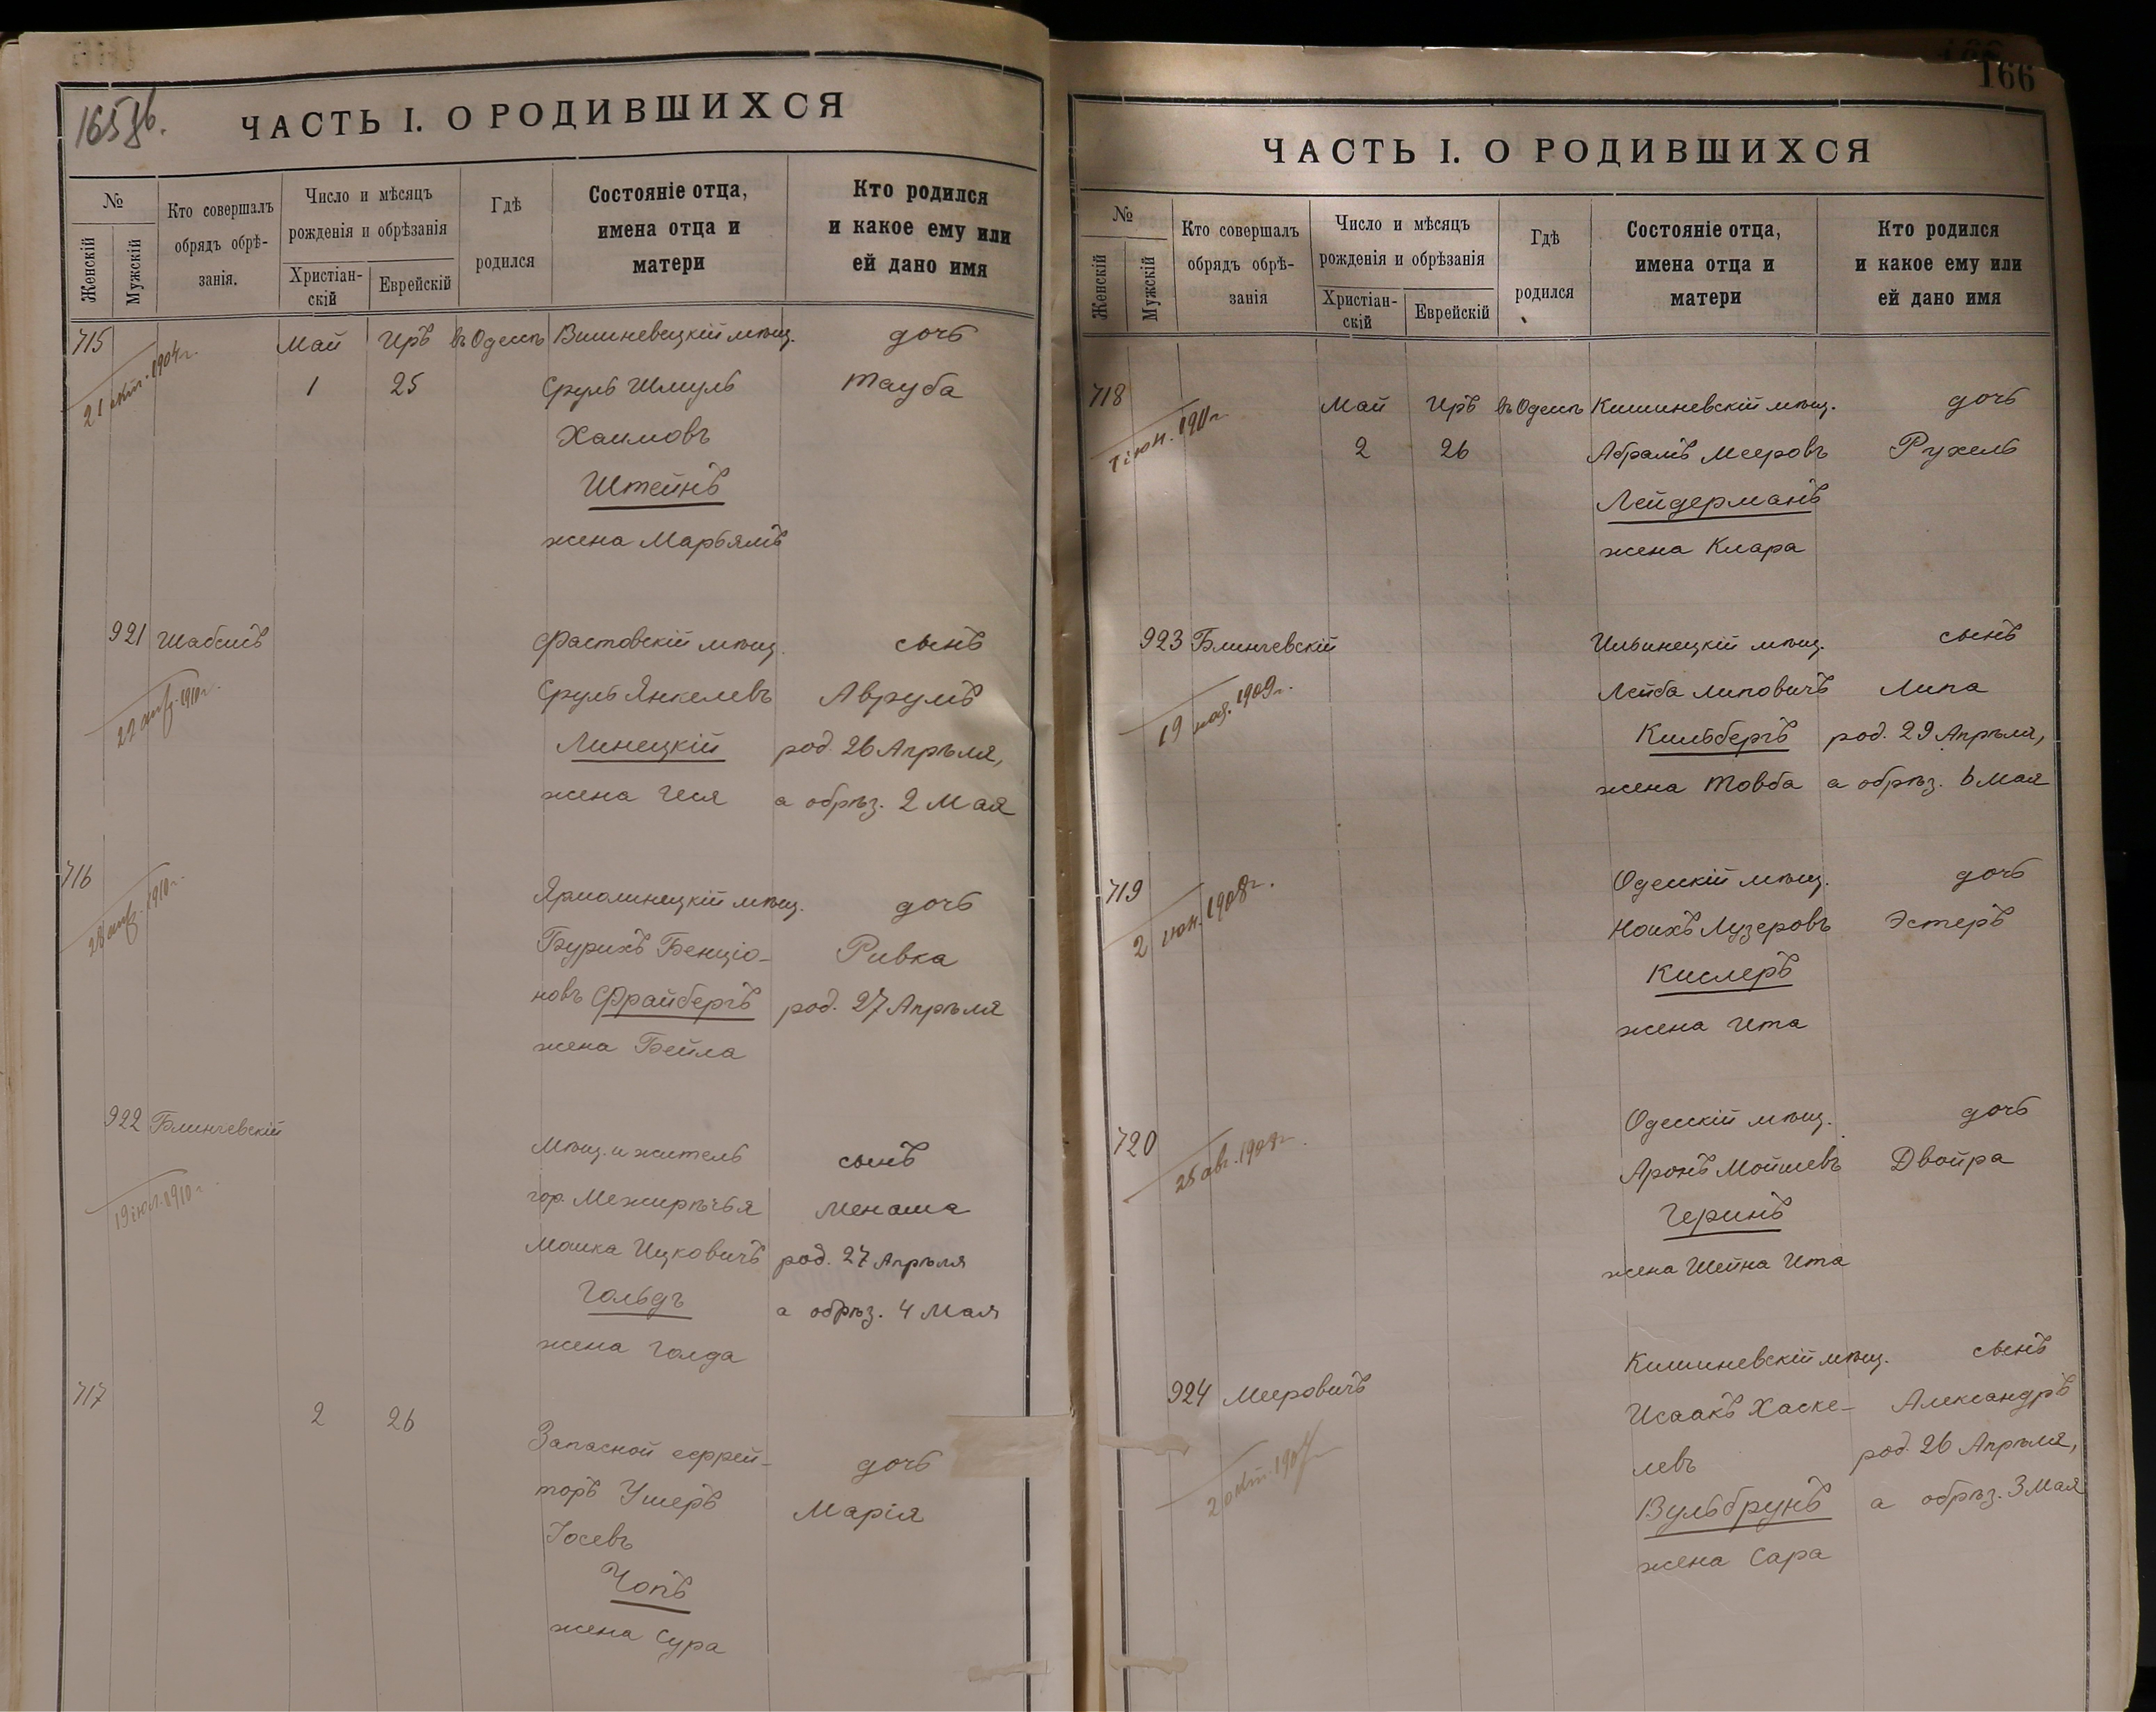 165 об.
ЧАСТЬ I. О РОДИВШИХСЯ
№
Женскій
Мужскій
Кто совершалъ
обрядъ обрѣ-
занія.
Число и мѣсяцъ
рожденія и обрѣзанія
Христіан-
скій
Еврейскій
Гдѣ
родился
Состояніе отца,
имена отца и
матери
Кто родился
и какое ему или
ей дано имя
715 Май Иръ въ Одессѣ Вишневецкій мѣщ. дочь
21 окт. 1904 г.
1 25 Сруль Шмуль Тауба
Хаимовъ
Штейнъ
жена Марьямъ
921 Шабсисъ Фастовскій мѣщ. сынъ
Сруль Янкелевъ Аврумъ
1910 г.
Линецкій род. 26 Апрѣля,
жена Геся а обрѣз. 2 Мая
716 Ярмолинецкій мѣщ. дочь
1910 г.
Бурихъ Бенціо- Ривка
новъ Фрайбергъ род. 27 Апрѣля
жена Бейла
922 Блинчевскій
Мѣщ. и житель сынъ
19 іюл. 1910 г.
гор. Межирѣчья Менаша
Мошка Ицковичъ род. 27 Апрѣля
Гольдъ а обрѣз. 4 Мая
жена Голда
717
2 26
Запасной ефрей- дочь
торъ Ушеръ Марія
Іосевъ
Чопъ
жена Сура
166
ЧАСТЬ I. О РОДИВШИХСЯ
№
Женскій
Мужскій
Кто совершалъ
обрядъ обрѣ-
занія
Число и мѣсяцъ
рожденія и обрѣзанія
Христіан-
скій
Еврейскій
Гдѣ
родился
Состояніе отца,
имена отца и
матери
Кто родился
и какое ему или
ей дано имя
718 Май Иръ въ Одессѣ Кишиневскій мѣщ. дочь
2 26 Абрамъ Мееровъ Рухель
Лейдерманъ
жена Клара
923 Блинчевскій Ильинецкій мѣщ. сынъ
Лейба Липовичъ Липа
19 ноя. 1909 г.
Кильбергъ род. 29 Апрѣля,
жена Товба а обрѣз. 6 Мая
719 Одесскій мѣщ. дочь
2 1908 г.
Ноихъ Лузеровъ Эстеръ
Кислеръ
жена Ита
720 Одесскій мѣщ. дочь
25 авг.
Аронъ Мойшевъ Двойра
Геринъ
жена Шейна Ита
Кишиневскій мѣщ. сынъ
924 Мееровичъ Исаакъ Хаске- Александръ
левъ род. 26 Апрѣля,
Вульбрунъ а обрѣз. 3 Мая
жена Сара